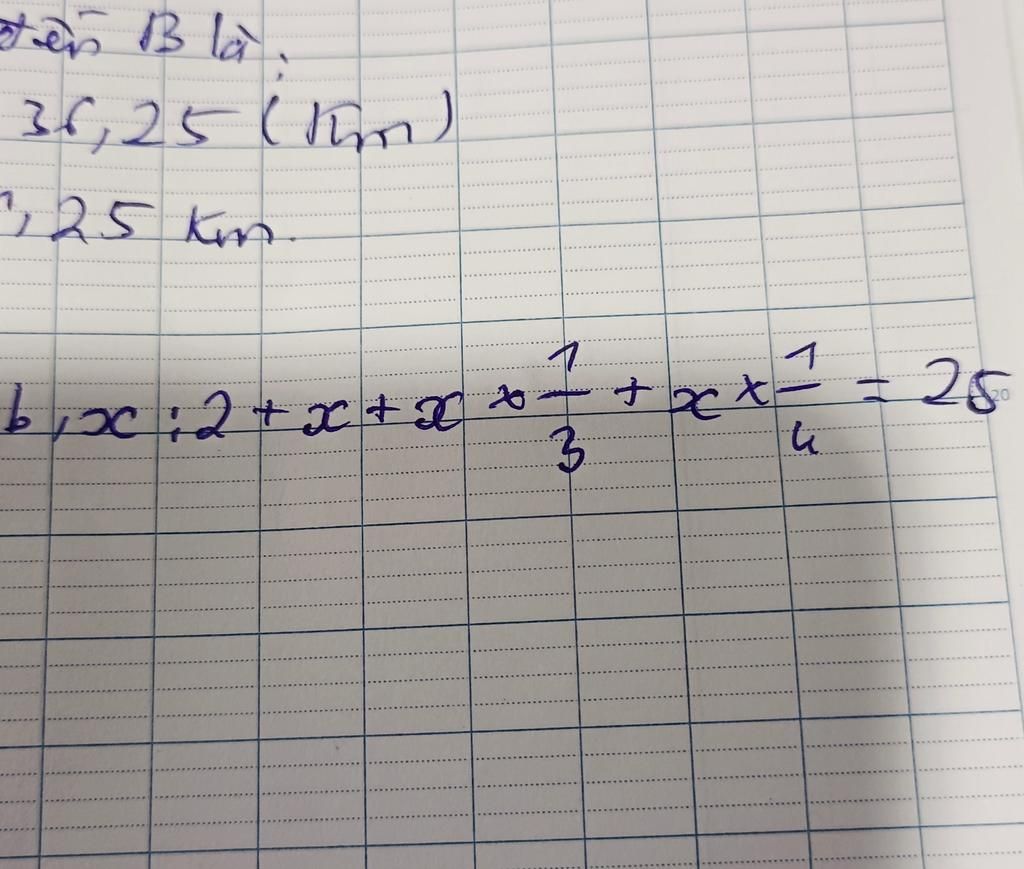 đến B là:
36,25 (Km)
,25 Km.
b, x : 2 + x + x × 1/3 + x × 1/4 = 25